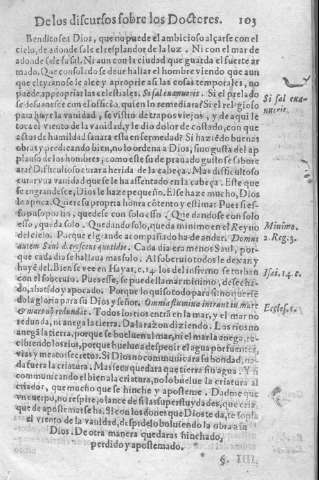 De los discursos sobre los Doctores. 103
Bendito sea Dios, que no puede el ambicioso alçarse con el
cielo, de adonde sale el resplandor de la luz. Ni con el mar de
adonde sale la sal. Ni aun con la ciudad que guarda el fuerte ar
mado. Que consolado se deue hallar el hombre viendo que aun
que el tyrano se le alce y apropie assi las cosas temporales, no
puede appropriar las celestiales. Si sal euanuerit. Si el prelado
se desuanesce con el officio, quien lo remediara? Si el religioso
para huyr la vanidad, se vistio de trapos viejos, y de aqui le
toca el viento de la vanidad, y le dio dolor de costado, con que
actos de humildad sanara esta enfermedad? Si haziendo buenas
obras y predicando bien, no lo ordena a Dios, sino gusta del a
plauso de los hombres; como este su deprauado gusto se sabore
ara? Dificultoso curara herida de la cabeça. Mas dificultoso
curar vna vanidad que se le ha assentado en la cabeça. Este que
se engrandesce, Dios le haze pequeño. El se haze mucho, Dios
le apoca. Quiere su propria honra contento y estima: Pues si es-
su proposito, quedese con solo esso. Que dandose con solo
esso, queda solo. Quedando solo, queda minimo en el Reyno
del cielo. Porque el grande acompañado ha de andar. Domus
autem Saul decrescens quotidie. Cada dia era menos Saul, por-
que cada dia se hallaua mas solo. Al soberuio todos le dexan y
huyen del. Bien se vee en Esayas, c. 14. los del infierno se torben
con el soberuio. Pues esse, se puede llamar minimo, desecha-
do, abatido y apocado. Porque lo quiso todo para si no queriē
do la gloria para su Dios y señor. Omnia flumina intrant in mare
& mare non redundat. Todos los rios entrā en la mar, y el mar no
redunda, ni anega la tierra. Da la razon diziendo. Los rios no
anegā la tierra, porque se bueluen al mar, ni el mar la anega, re-
cibiendo los rios, porque buelue a despedir el agua por fuentes,
vias y meatos secretos. Si Dios no comunicara su bondad, na-
da fuera la criatura. Mas seco quedara que tierra sin agua. Y si
comunicando el bien a la criatura, no lo buelue la criatura al
criador, que mucho que se hinche y aposteme. Dadme que
vn cuerpo, no respire, o lance de si las superfluydades, que cria,
que de apostemas se ha. Si con los dones que Dios te da, te sopla
el viento de la vanidad, despidelo boluiendo la obra a su
Dios. De otra manera quedaras hinchado,
perdido y apostemado.
§. IIII.
Si sal eua-
nuerit.
Minimo.
2. Reg. 3.
Isai. 14. c.
Eccles. 1.